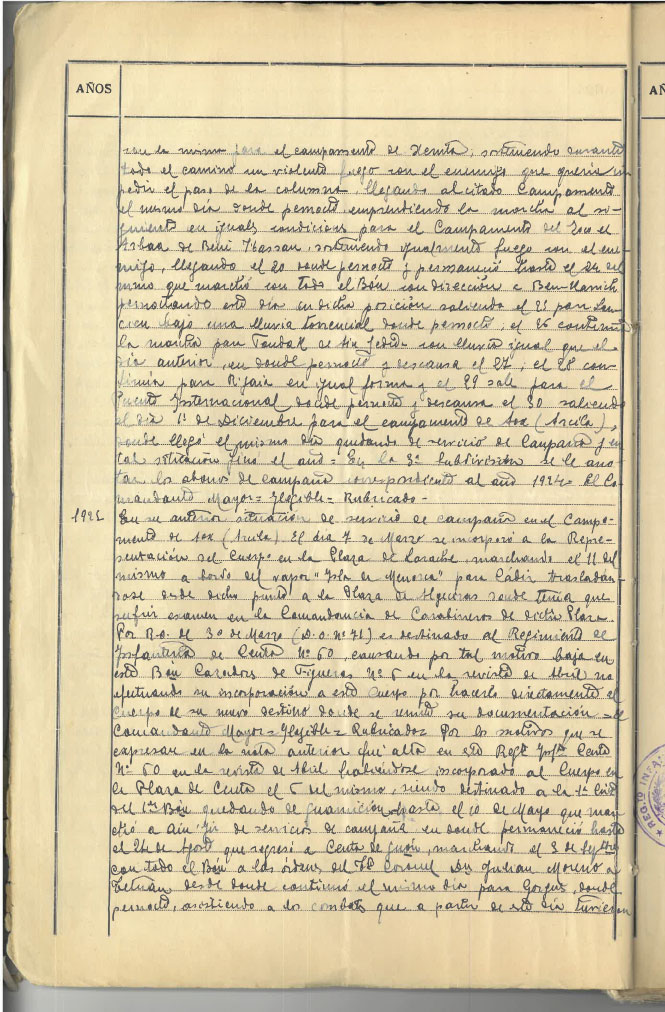 AÑOS
con la misma para el campamento de Xeruta, sosteniendo durante
todo el camino un violento fuego con el enemigo que queria im-
pedir el paso de la columna, llegando al citado Campamento
el mismo dia donde pernoctó emprendiendo la marcha al si-
guiente en iguales condiciones para el Campamento del Zoco el
Arbaa de Beni Hassan, sosteniendo igualmente fuego con el ene-
migo, llegando el 20 donde pernoctó y permaneció hasta el 24 del
mismo que marchó con todo el Bón con dirección a Ben-Karrich
pernoctando este dia en dicha posición saliendo el 25 para
bajo una lluvia torrencial donde pernoctó, el 26 continuó
la marcha para Fondak de Ain Jedida con lluvia igual que el
dia anterior, en donde pernoctó y descansa el 27, el 28 con-
tinúa para Rifaia en igual forma y el 29 sale para el
Puente Internacional donde pernoctó y descansa el 30 saliendo
el dia 1º de Diciembre para el campamento de (Arcila),
donde llegó el mismo dia quedando de servicio de Campaña y en
tal situación finó el año = En la 3ª Subdivisión se le ano-
tan los abonos de campaña correspondiente al año 1924 = El Co-
mandante Mayor = Ilegible = Rubricado -
1925 En su anterior situación de servicio de campaña en el Campa-
mento de (Arcila). El dia 7 de Marzo se incorporó a la Repre-
sentación del Cuerpo en la Plaza de Larache marchando el 11 del
mismo a bordo del vapor "Isla de Menorca" para Cádiz trasladán-
dose desde dicho punto a la Plaza de Algeciras donde tenia que
sufrir examen en la Comandancia de Carabineros de dicha Plaza.
Por R.O. de 30 de Marzo (D.O. Nº 71) es destinado al Regimiento de
Infanteria de Ceuta Nº 60, causando por tal motivo baja en
este Bón Cazadores de Figueras Nº 6 en la revista de Abril no
efectuando su incorporación a este Cuerpo por hacerlo directamente al
Cuerpo de su nuevo destino donde se remite su documentación = El
Comandante Mayor = Ilegible = Rubricado = Por los motivos que se
expresan en la nota anterior fué alta en este Regtº Infª Ceuta
Nº 60 en la revista de Abril habiéndose incorporado al Cuerpo en
la Plaza de Ceuta el 6 del mismo, siendo destinado a la 1ª Cia
del 1er Bón quedando de guarnición hasta el 10 de Mayo que mar-
chó a Ain Jir de servicios de campaña en donde permaneció hasta
el 24 de Agosto que regresó a Ceuta de marchando el 3 de Sepbre
con todo el Bón a las órdenes del Tte Coronel Dn Julian Moreno a
Tetuán desde donde continuó el mismo dia para Gorgues, donde
pernoctó, asistiendo a los combates que a partir de este dia tuvieron
AÑ
REGTO INFA